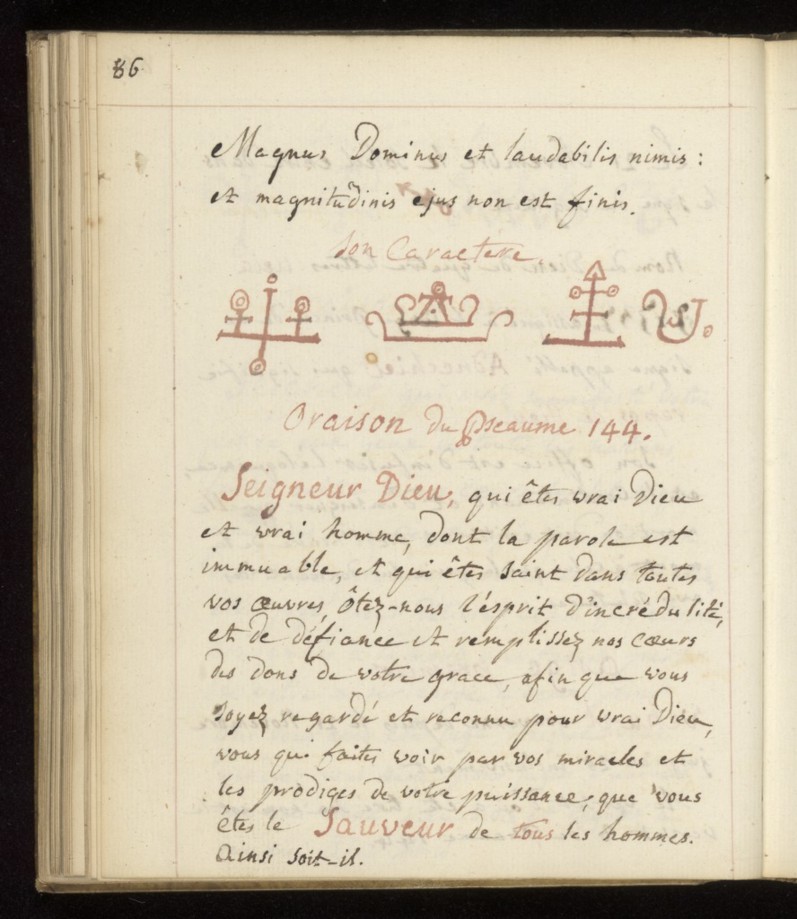 86
Magnus Dominus et laudabilis nimis :
et magnitudinis ejus non est finis.
Son Caractere.
Oraison du Pseaume 144.
Seigneur Dieu, qui êtes vrai Dieu
et vrai homme, dont la parole est
immuable, et qui êtes saint dans toutes
vos œuvres, Ôtez-nous l'ésprit d'incrédulité,
et de défiance et remplissez nos cœurs
des dons de votre grace, afin que vous
soyez regardé et reconnu pour vrai Dieu,
vous qui faites voir par vos miracles et
les prodiges de votre puissance, que vous
êtes le Sauveur de tous les hommes.
Ainsi soit-il.